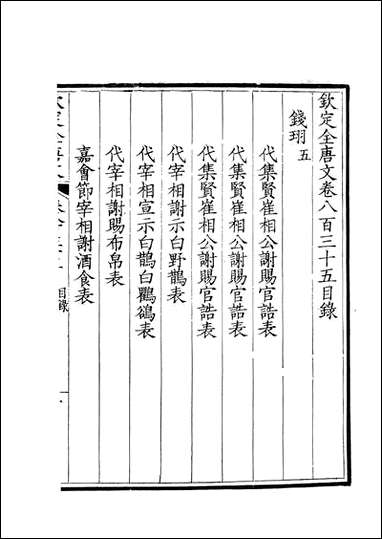 欽定全唐文卷八百三十五目錄
錢珝五
代集賢崔相公謝賜官誥表
代集賢崔相公謝賜官誥表
代集賢崔相公謝賜官誥表
代宰相謝示白野鵲表
代宰相宣示白鵲白鸜鵒表
代宰相謝賜布帛表
嘉會節宰相謝酒食表
目錄
一